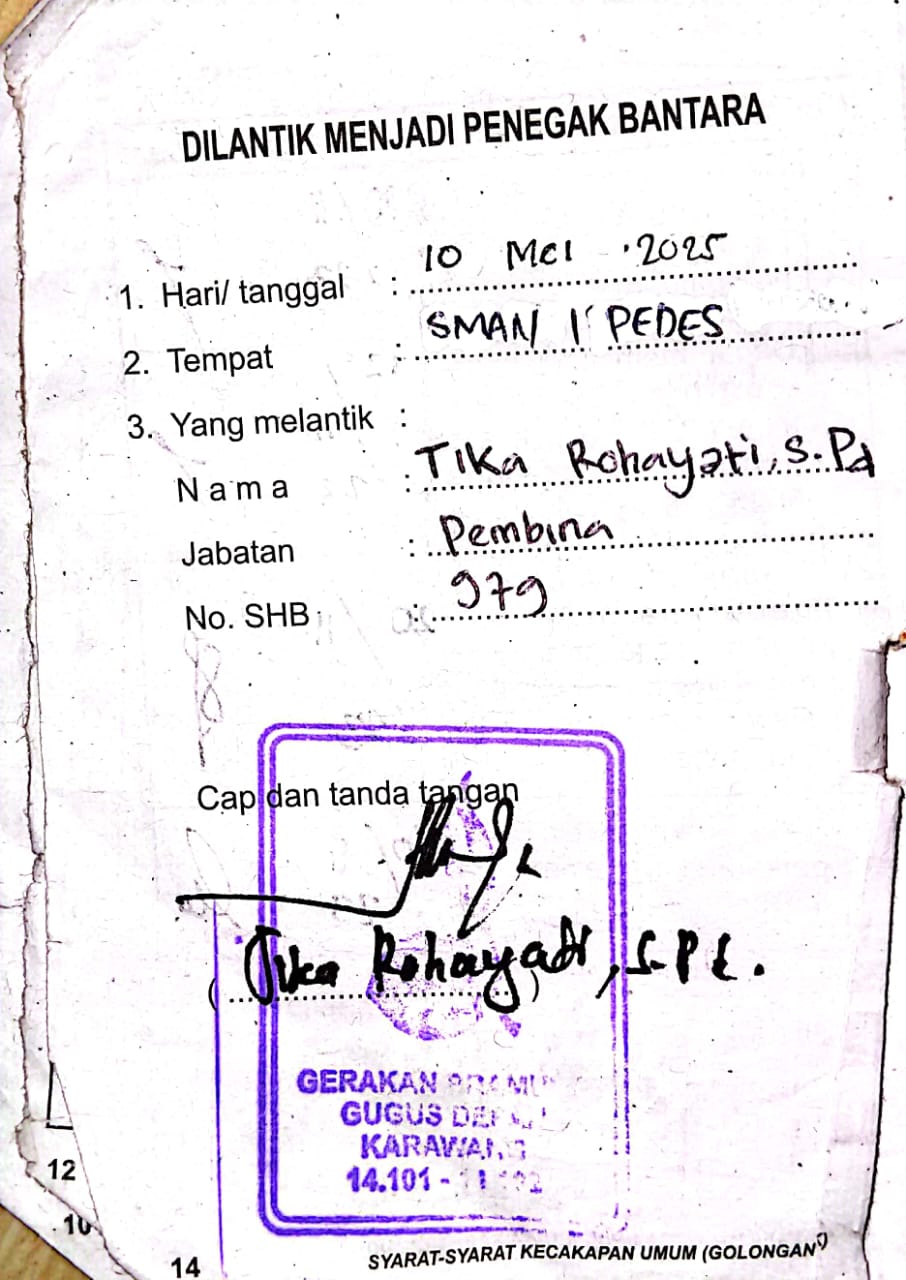 DILANTIK MENJADI PENEGAK BANTARA
1. Hari/ tanggal : 10 Mei 2025
2. Tempat : SMAN 1 PEDES
3. Yang melantik :
N a m a : Tika Rohayati, S.Pd
Jabatan : Pembina
No. SHB : 979
Cap dan tanda tangan
(Tika Rohayati, S.Pd.)
GERAKAN PRAMU
GUGUS DEP
KARAWANG
14.101 -
12
10
14
SYARAT-SYARAT KECAKAPAN UMUM (GOLONGAN